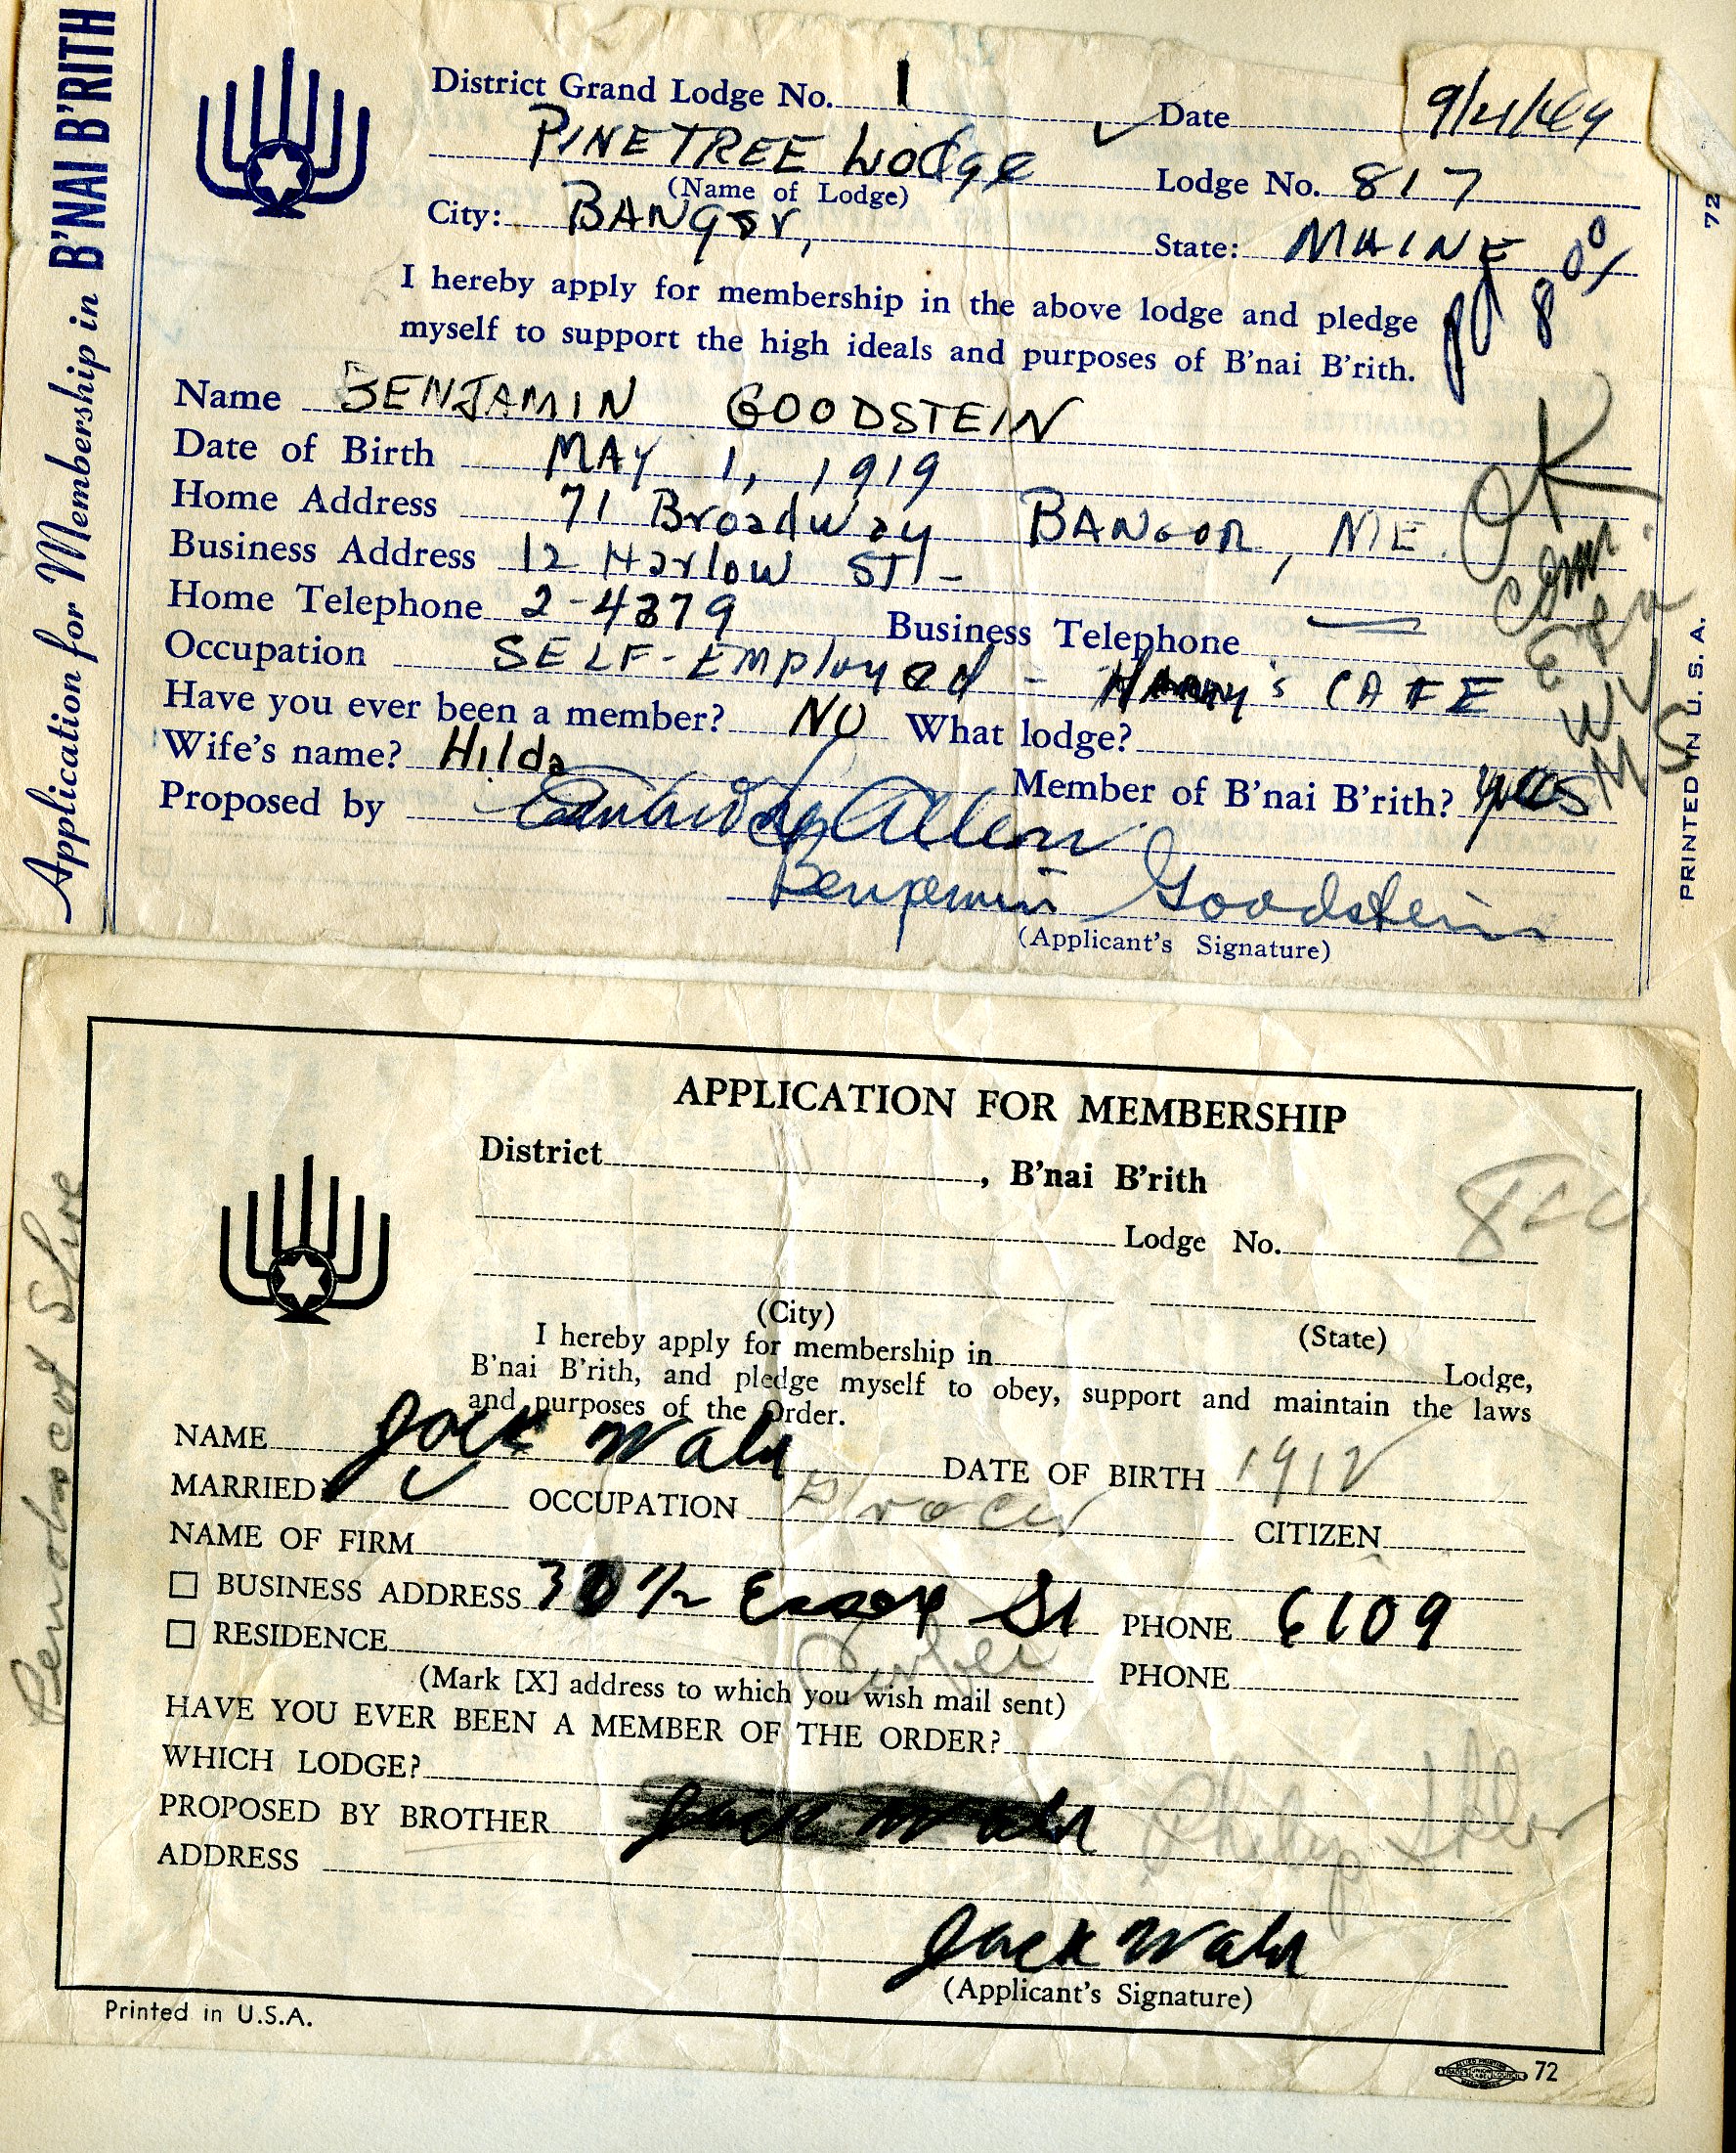 Application for Membership in B'NAI B'RITH
District Grand Lodge No. 1
Date
PINETREE Lodge
(Name of Lodge)
Lodge No. 817
City: BANGor,
State: MAINE
pd 8 00
I hereby apply for membership in the above lodge and pledge
myself to support the high ideals and purposes of B'nai B'rith.
Name BENJAMIN GOODSTEIN
Date of Birth MAY 1, 1919
Home Address 71 Broadway BANGOR, ME.
OK
Business Address 12 Harlow ST -
Home Telephone 2-4379 Business Telephone
Occupation SELF-Employed - HARRY's CAFE
Have you ever been a member? NO What lodge?
Wife's name? Hilda
Member of B'nai B'rith? yes
Proposed by Allen
Benjamin Goodstein
(Applicant's Signature)
72
PRINTED IN U. S. A.
APPLICATION FOR MEMBERSHIP
District, B'nai B'rith
Lodge No.
(City)
(State)
I hereby apply for membership in Lodge,
B'nai B'rith, and pledge myself to obey, support and maintain the laws
and purposes of the Order.
NAME Jack Wald DATE OF BIRTH 1912
MARRIED ✓ OCCUPATION CITIZEN
NAME OF FIRM
BUSINESS ADDRESS 30 1/2 Essex St PHONE 6109
RESIDENCE PHONE
(Mark [X] address to which you wish mail sent)
HAVE YOU EVER BEEN A MEMBER OF THE ORDER?
WHICH LODGE?
PROPOSED BY BROTHER Jack Wald Philip
ADDRESS
Jack Wald
(Applicant's Signature)
Printed in U.S.A.
72
Penobscot Shoe